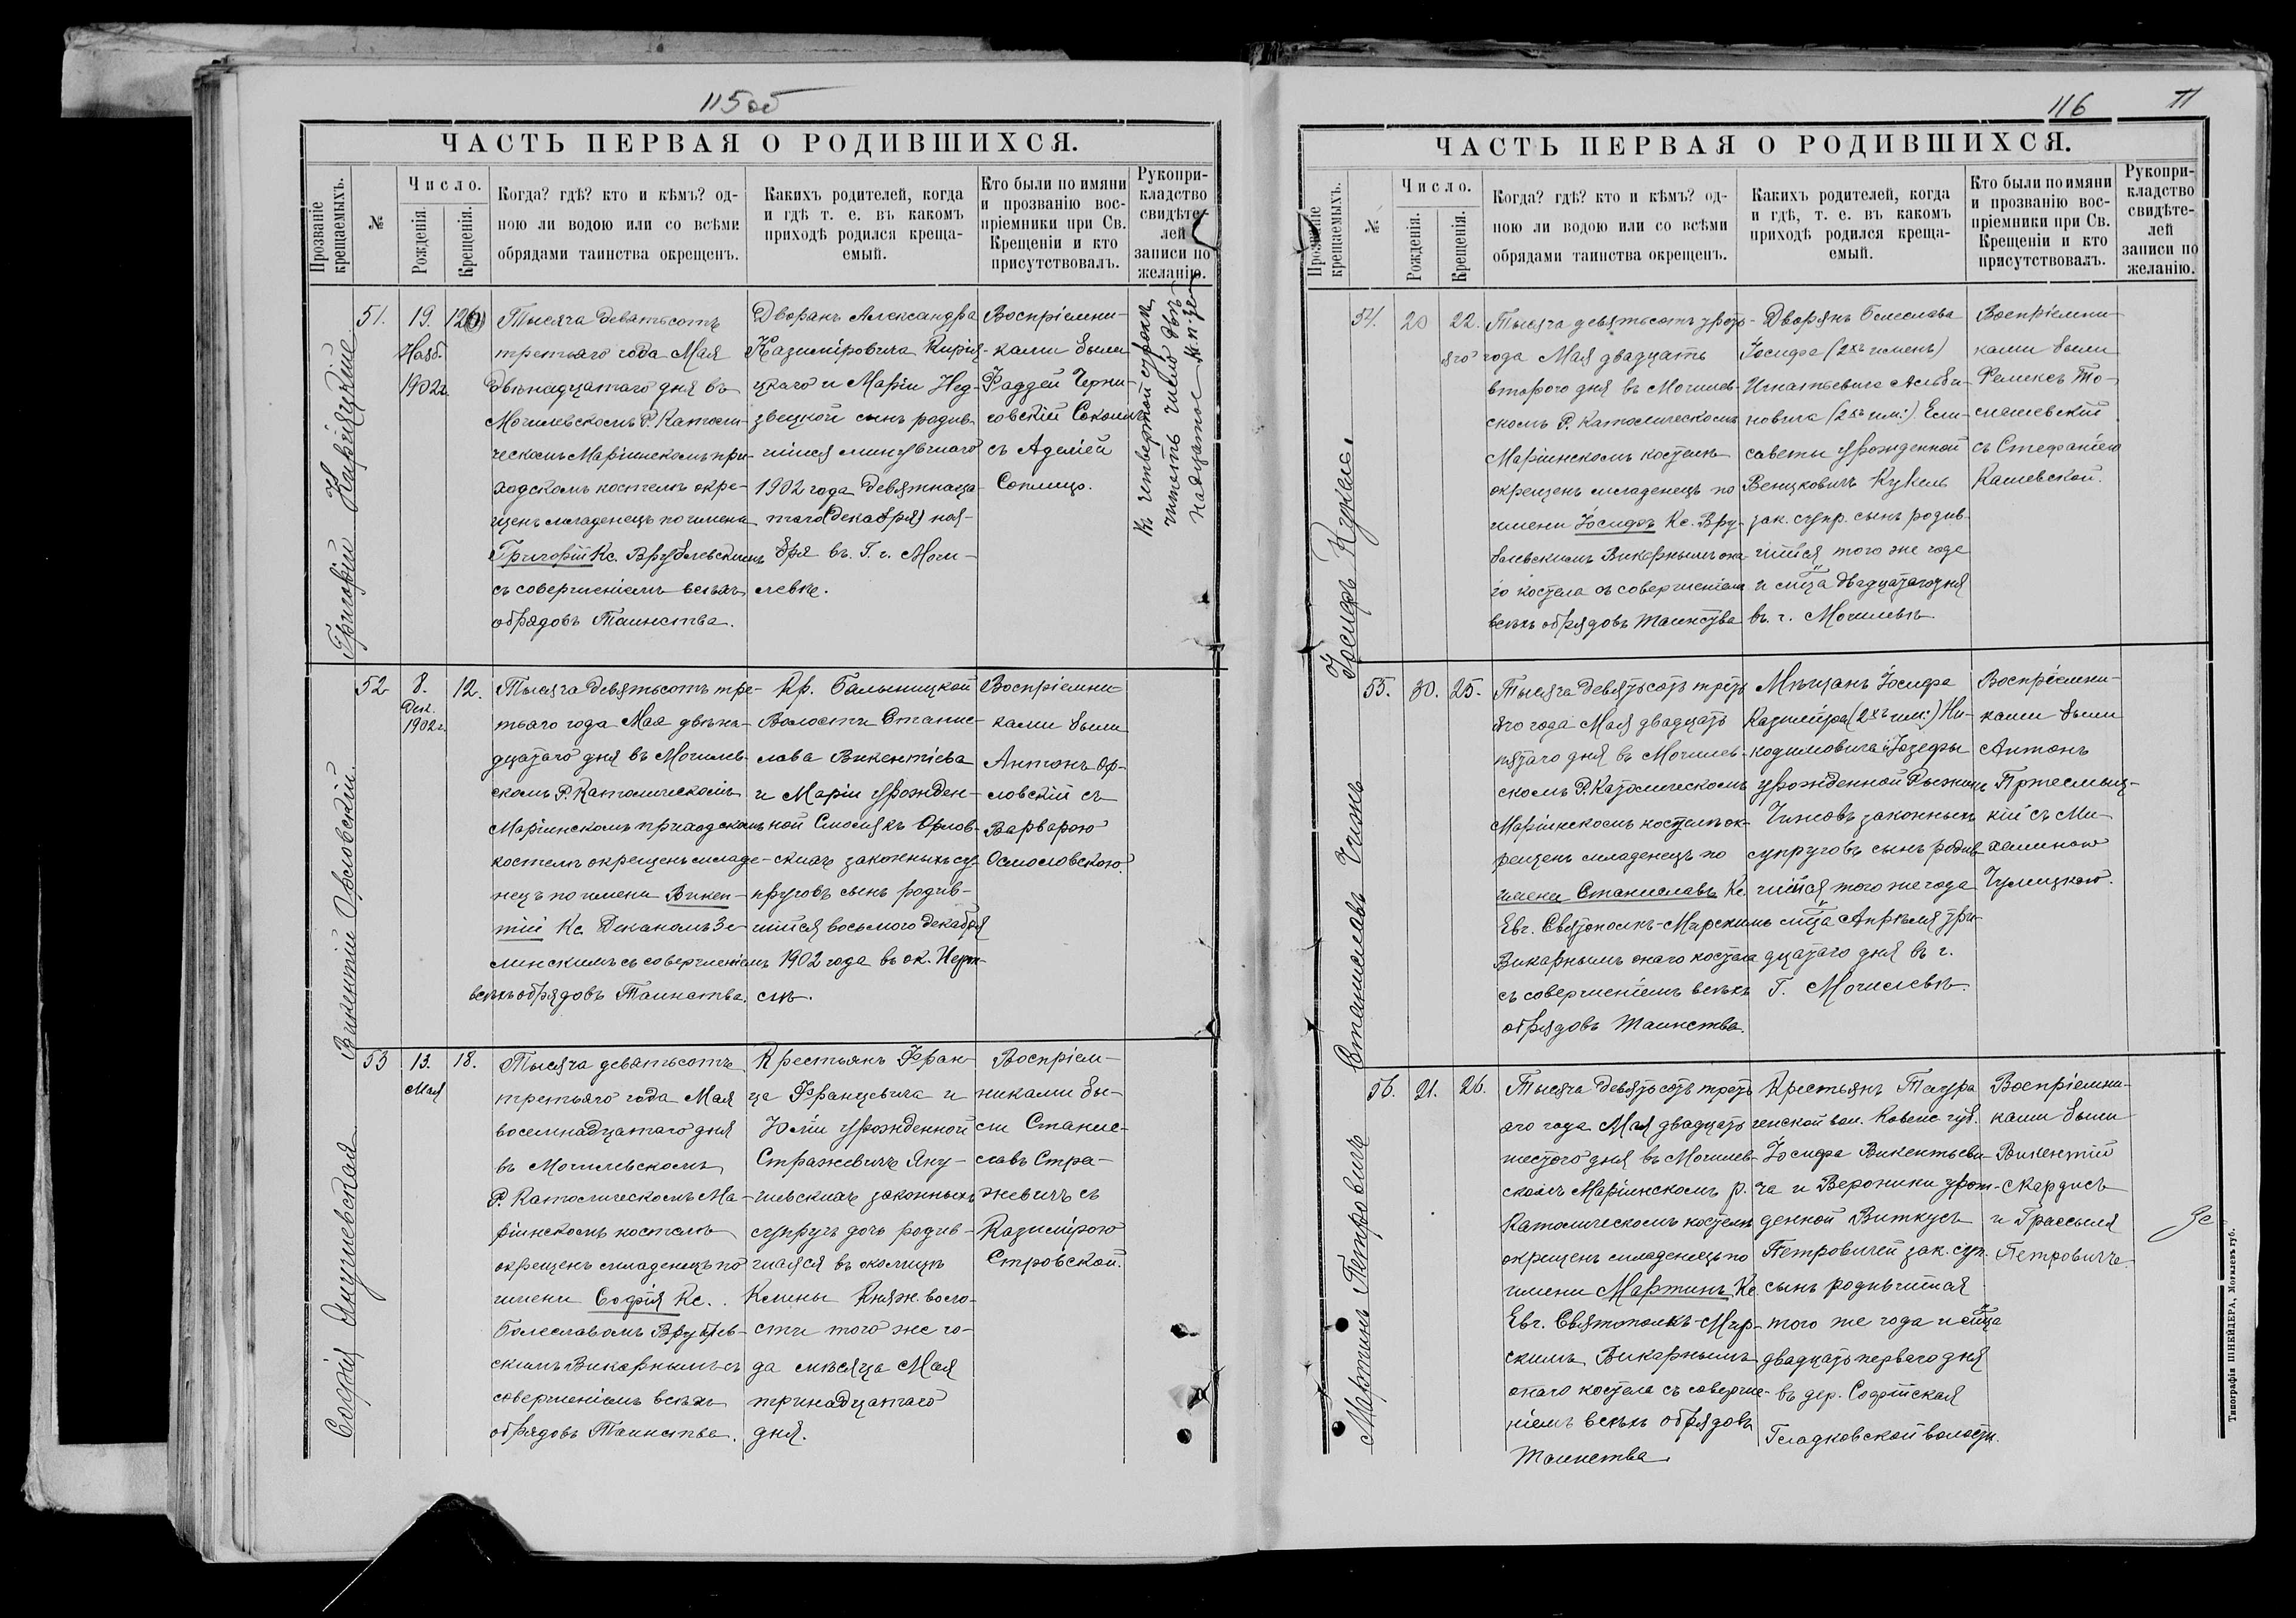 115об
ЧАСТЬ ПЕРВАЯ О РОДИВШИХСЯ.
Прозваніе крещаемыхъ.
№
Число.
Рожденія.
Крещенія.
Когда? гдѣ? кто и кѣмъ? од-
ною ли водою или со всѣми
обрядами таинства окрещенъ.
Какихъ родителей, когда
и гдѣ т. е. въ какомъ
приходѣ родился креща-
емый.
Кто были по имяни
и прозванію вос-
пріемники при Св.
Крещеніи и кто
присутствовалъ.
Рукопри-
кладство
свидѣте-
лей
записи по
желанію.
Григорій
51.
19.
Нояб.
1902г.
12
Тысяча девятьсотъ
третьяго года Мая
двѣнадцатаго дня въ
Могилевскомъ Р. Католи-
ческомъ Маріинскомъ при-
ходскомъ костелѣ окре-
щенъ младенецъ по имени
Григорій Кс. Врублевскимъ
съ совершеніемъ всѣхъ
обрядовъ Таинства.
Дворянъ Александра
Казиміровича
и Маріи Нед-
звецкой сынъ родив-
шійся минувшаго
1902 года девятнадца-
таго (декабря) ноя-
бря въ Г. г. Моги-
левѣ.
Воспріемни-
ками были
Фаддей Черни-
ковскій
съ Аделіей
Соплицо.
Къ четвертой строкѣ
читать число двѣ-
надцатое
Викентій Орловскій.
52
8.
Дек.
1902г.
12.
Тысяча девятьсотъ тре-
тьяго года Мая двѣна-
дцатаго дня въ Могилев-
скомъ Р. Католическомъ
Маріинскомъ приходскомъ
костелѣ окрещенъ младе-
нецъ по имени Викен-
тій Кс. Деканомъ Зе-
линскимъ съ совершеніемъ
всѣхъ обрядовъ Таинства.
Кр. Балыницкой
Волости Станис-
лава Викентіева
и Маріи урожден-
ной Смолякъ Орлов-
скихъ законныхъ су-
пруговъ сынъ родив-
шійся восьмого декабря
1902 года въ ок.
Воспріемни-
ками были
Антонъ Ор-
ловскій съ
Варварою
Осмоловскою.
Софія Янушевская
53
13.
Мая
18.
Тысяча девятьсотъ
третьяго года Мая
восемнадцатаго дня
въ Могилевскомъ
Р. Католическомъ Ма-
ріинскомъ костелѣ
окрещенъ младенецъ по
имени Софія Кс.
Болеславомъ Врублев-
скимъ Викарнымъ съ
совершеніемъ всѣхъ
обрядовъ Таинства.
Крестьянъ Фран-
ца Францевича и
Юліи урожденной
Стражевичъ Яну-
шевскихъ законныхъ
супруг. дочь родив-
шаяся въ околицѣ
Княж. воло-
сти того же го-
да мѣсяца Мая
тринадцатаго
дня.
Воспріем-
никами бы-
ли Станис-
лавъ Стра-
жевичъ съ
Казимірою
Стровской.
116
ЧАСТЬ ПЕРВАЯ О РОДИВШИХСЯ.
Прозваніе крещаемыхъ.
№
Число.
Рожденія.
Крещенія.
Когда? гдѣ? кто и кѣмъ? од-
ною ли водою или со всѣми
обрядами таинства окрещенъ.
Какихъ родителей, когда
и гдѣ, т. е. въ какомъ
приходѣ родился креща-
емый.
Кто были по имяни
и прозванію вос-
пріемники при Св.
Крещеніи и кто
присутствовалъ.
Рукопри-
кладство
свидѣте-
лей
записи по
желанію.
Іосифъ Кукель.
54.
20
22.
Тысяча девятьсотъ треть-
яго года Мая двадцать
второго дня въ Могилев-
скомъ Р. Католическомъ
Маріинскомъ костелѣ
окрещенъ младенецъ по
имени Іосифъ Кс. Вру-
блевскимъ Викарнымъ она-
го костела съ совершеніемъ
всѣхъ обрядовъ таинства
Дворянъ Болеслава
Іосифа (2хъ именъ)
Игнатьевича Альби-
новича (2хъ им:) Ели-
саветы урожденной
Венцковичъ Кукель
зак. супр. сынъ родив-
шійся того же года
и мца двадцатаго дня
въ г. Могилевѣ
Воспріемни-
ками были
Феликсъ То-
машевскій
съ Стефаніею
Кашевской.
Станиславъ Чижъ
55.
30.
25.
Тысяча девятьсотъ треть
яго года Мая двадцать
пятаго дня въ Могилев-
скомъ Р. Католическомъ
Маріинскомъ костелѣ ок-
рещенъ младенецъ по
имени Станиславъ Кс.
Евг. Святополкъ-Мирскимъ
Викарнымъ онаго костела
съ совершеніемъ всѣхъ
обрядовъ таинства.
Мѣщанъ Іосифа
Казиміра (2хъ им:) Ни-
кодимовича и Іозефы
урожденной
Чижовъ законныхъ
супруговъ сынъ родив
шійся того же года
мца Апрѣля три-
дцатаго дня въ г.
Г. Могилевѣ.
Воспріемни-
ками были
Антонъ
кій съ Ми-
халиною
Мартинъ Петровичъ
56.
21.
26.
Тысяча девятьсотъ треть
яго года Мая двадцать
шестого дня въ Могилев-
скомъ Маріинскомъ р.
Католическомъ костелѣ
окрещенъ младенецъ по
имени Мартинъ Кс.
Евг. Святополкъ-Мир-
скимъ Викарнымъ
онаго костела съ соверше-
ніемъ всѣхъ обрядовъ
Таинства
Крестьянъ Таура
генской вол. Ковенс губ.
Іосифа Викентьеви-
ча и Вероники урож-
денной Виткусъ
Петровичей зак. суп.
сынъ родившійся
того же года и мца
двадцать перваго дня
въ дер. Софійская
Гладковской волости.
Воспріемни-
ками были
Викентій
Скардисъ
и
Петровичъ
Типографія ШНЕЙДЕРА, Могилевъ губ.